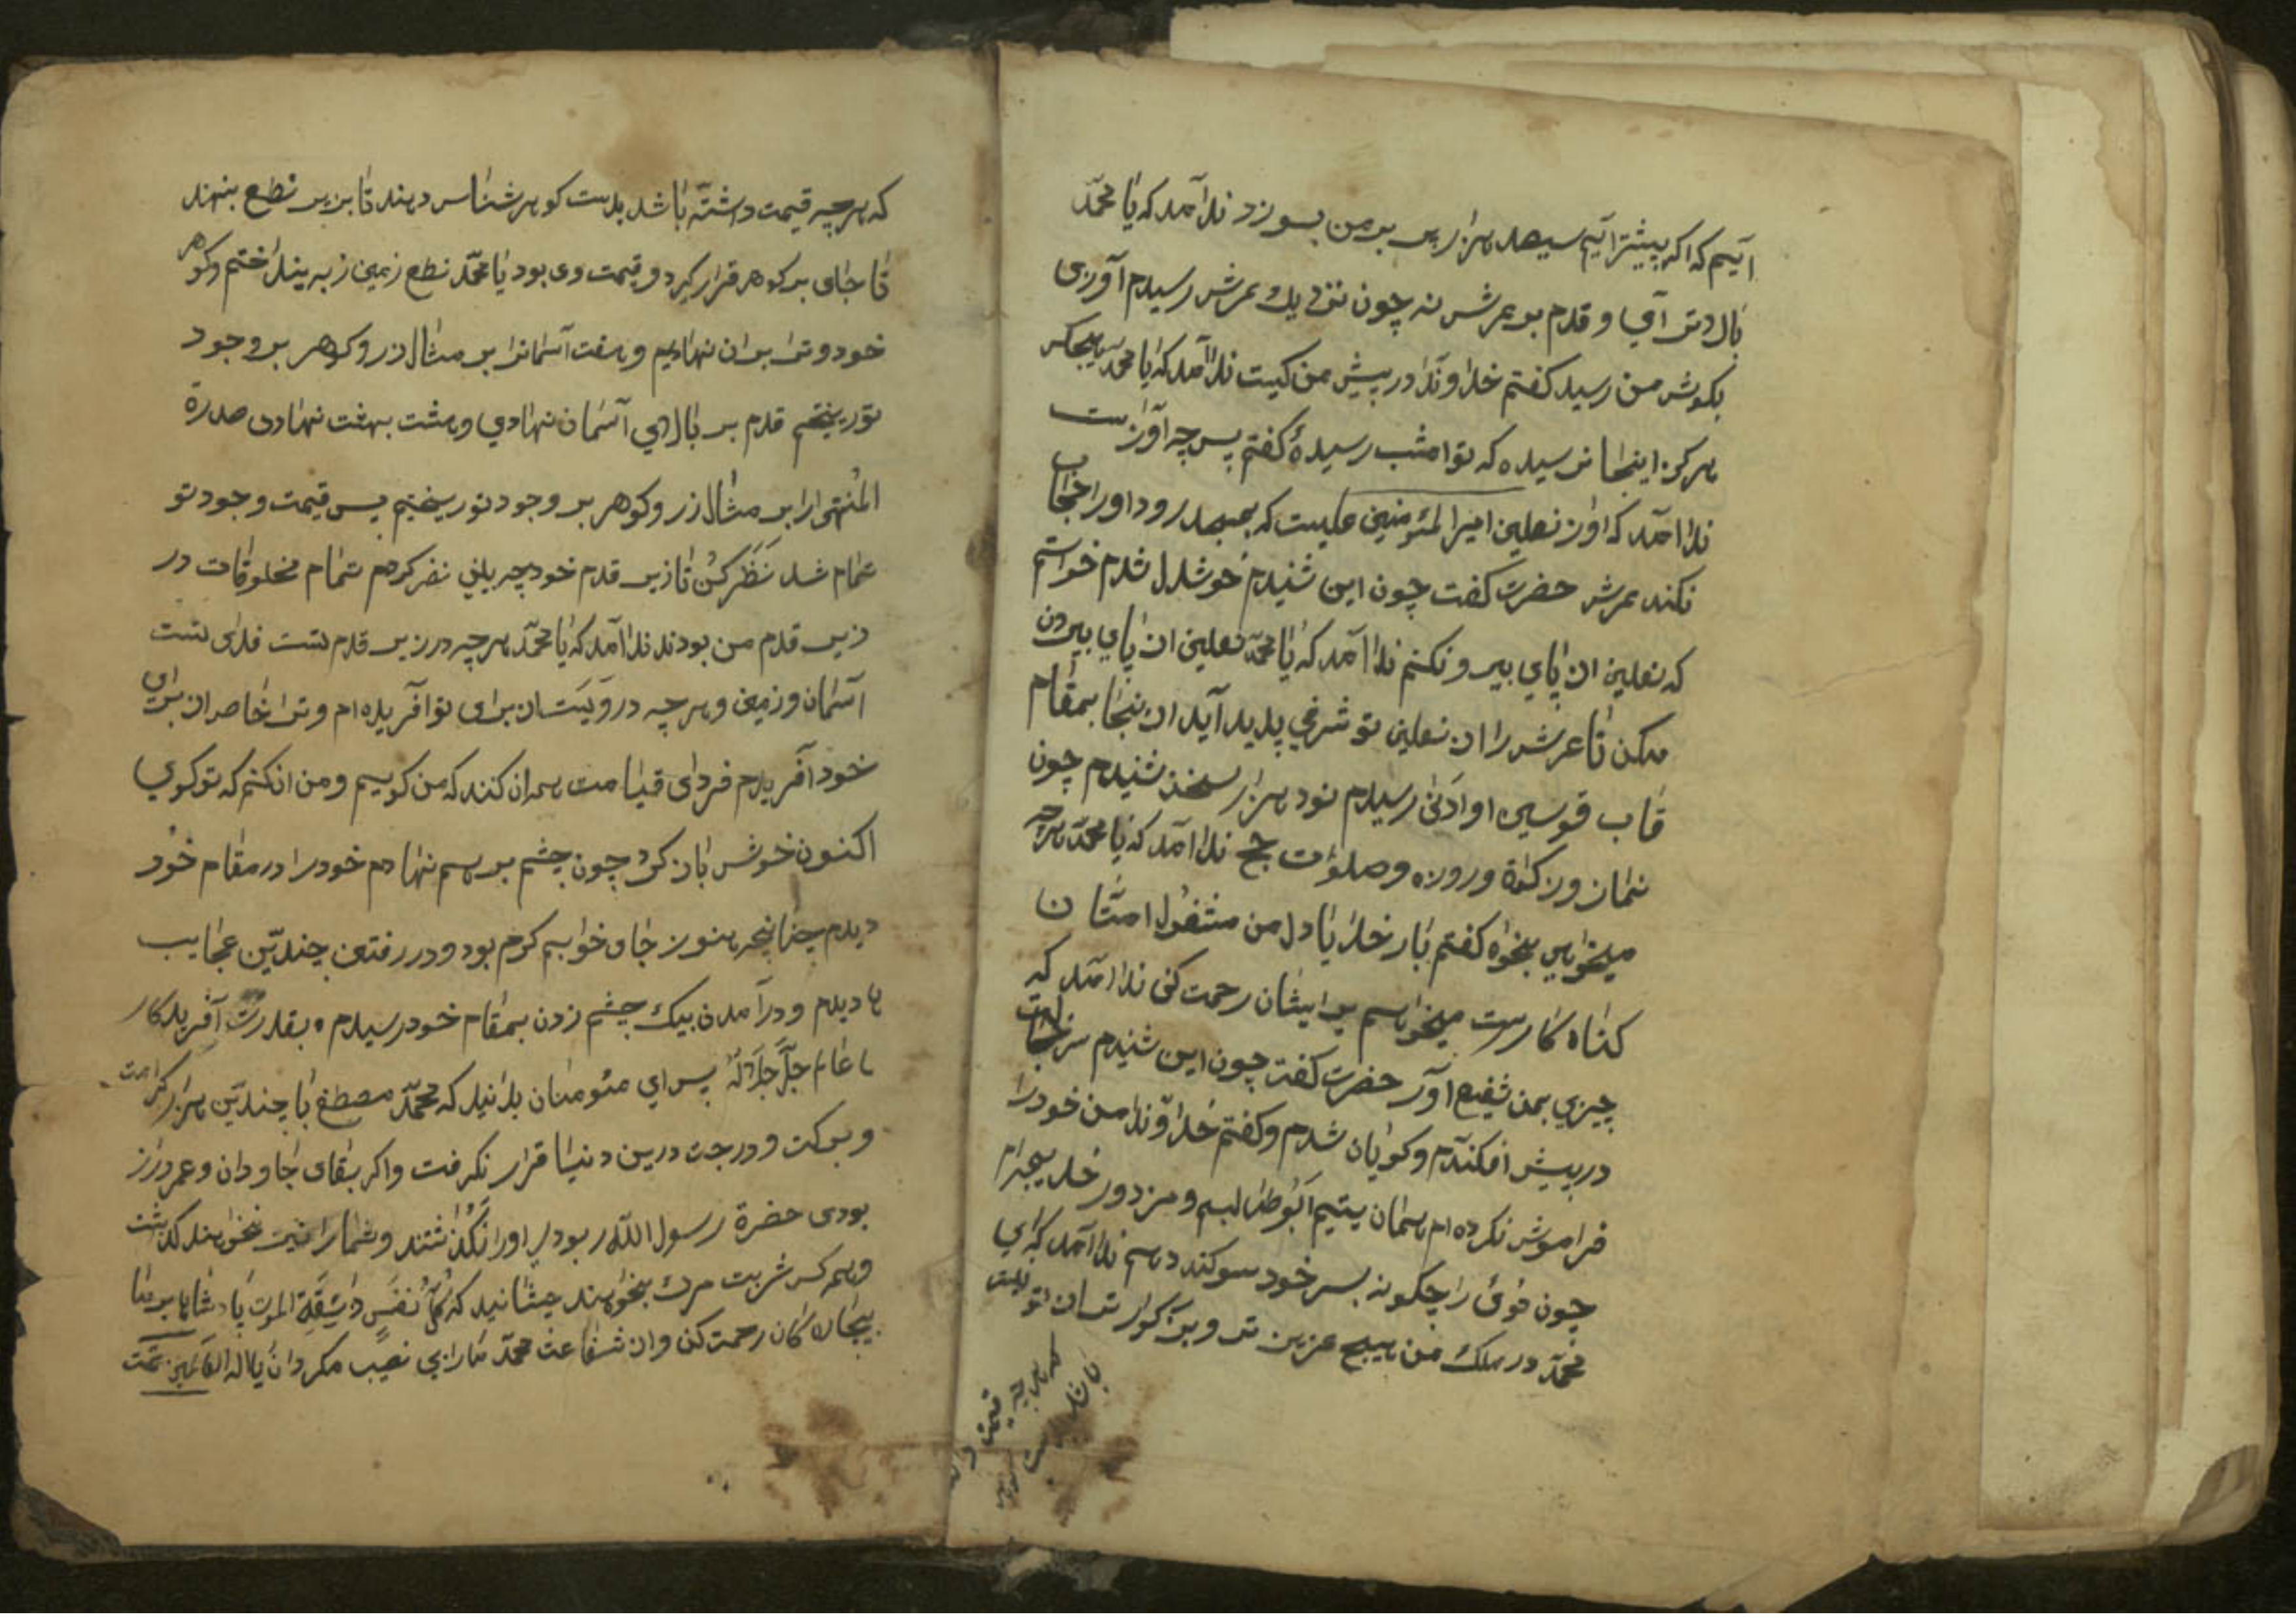 آیم که اکر پیشتر آیم سیصد هزار پر بر من بسوزد ندا آمد که یا محمّد
بالاتر آی و قدم بر عرش نه چون نزدیك عرش رسیدم آوازی
بکوش من رسید کفتم خداوندا در پیش من کیست ندا آمد که یا محمّد هیچکس
هرکز اینجا نرسیده که تو امشب رسیدهٔ کفتم پس چه آوازست
ندا آمد که اواز نعلین امیر المئومنین علیست که بمیرود او را حجاب
نکند عرش حضرت کفت چون این شنیدم خوشدل شدم خواستم
که نعلین از پای بیرون کنم ندا آمد که یا محمّد نعلین از پای بیرون
مکن تا عرش را از نعلین تو شرفی پدید آید از اینجا بمقام
قاب قوسین او ادنی رسیدم نود هزار سخن شنیدم چون
نماز و زکوة و روزه و صلوات حج ندا آمد که یا محمّد هرچه
میخواهی بخواه کفتم بار خدایا دل من مشغول امتّان
کناه کارست میخواهم بر ایشان رحمت کنی ندا آمد که
چیزی بمن شفیع آور حضرت کفت چون این شنیدم سر خجالت
در پیش افکندم و کویان شدم و کفتم خداوندا من خود را
فراموش نکرده ام همان یتیم ابوطالبم و مزدور خدیجه ام
چون توئی را چکونه بسر خود سوکند دهم ندا آمد که ای
محمّد در ملك من هیچ عزیز تر و بزرکوار تر از تو نیست
که هر چه قیمت داشته
باشد بدست
که هر چه قیمت داشتّه باشد بدست کوهر شناس دهند تا بزیر نطع بنهند
تا جای بر کوهر قرار کیرد و قیمت وی بود یا محمّد نطع زمین زیر بینداختم و کوهر
خود و ترا بر ان نهادیم و هفت آسمانرا بر مثال زر و کوهر بر وجود
تو ریختیم قدم بر بالای آسمان نهادی و هشت بهشت نهادی صدرة
المُنتهی را بر مثال زر و کوهر بر وجود تو ریختیم پس قیمت وجود تو
تمام شد نَظَر کُن تا زیر قدم خود چه بینی نضر کردم تمام مخلوقات در
زیر قدم من بودند ندا آمد که یا محمّد هر چه در زیر قدم تست فدای تست
آسمان و زمین و هر چه در ویَستان برای تو آفریده ام و ترا خاصر از برای
خود آفریدم فردای قیامت همان کنند که من کویم و من انکنم که تو کوی
اکنون خوش باز کرد چون چشم بر هم نهادم خود را در مقام خود
دیدم چنانچه هنوز جای خوابم کرم بود و در رفتن چندیّن عجایب
ها دیدم و در آمدن بیك چشم زدن بمقام خود رسیدم ه بقدرت آفریدکار
عالم جلّ جلاله پس ای مئومنان بدانید که محمّد مصطفی با چندیّن هزار کرامت
و برکت و درجت درین دنیا قرار نکرفت و اکر بقای جاودان و عمر دراز
بودی حضرة رسول اللّه ر بودی او را نکذاشتند و شما را نیز نخواهند کذاشت
و همه کس شربت مرك بخواهند چشانید که کلّ نفسٍ ذائقةِ الموت پادشاها بر ما
بیچارکان رحمت کن و از شفاعت محمّد ما را بی نصیب مکردان یا اله العالمین تمّت